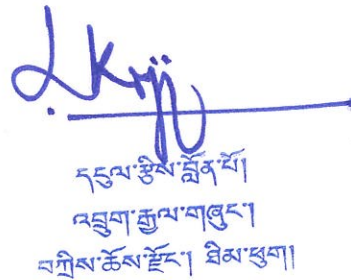 དངུལ་རྩིས་བློན་པོ།
འབྲུག་རྒྱལ་གཞུང་།
བཀྲིས་ཆོས་རྫོང་། ཐིམ་ཕུག།